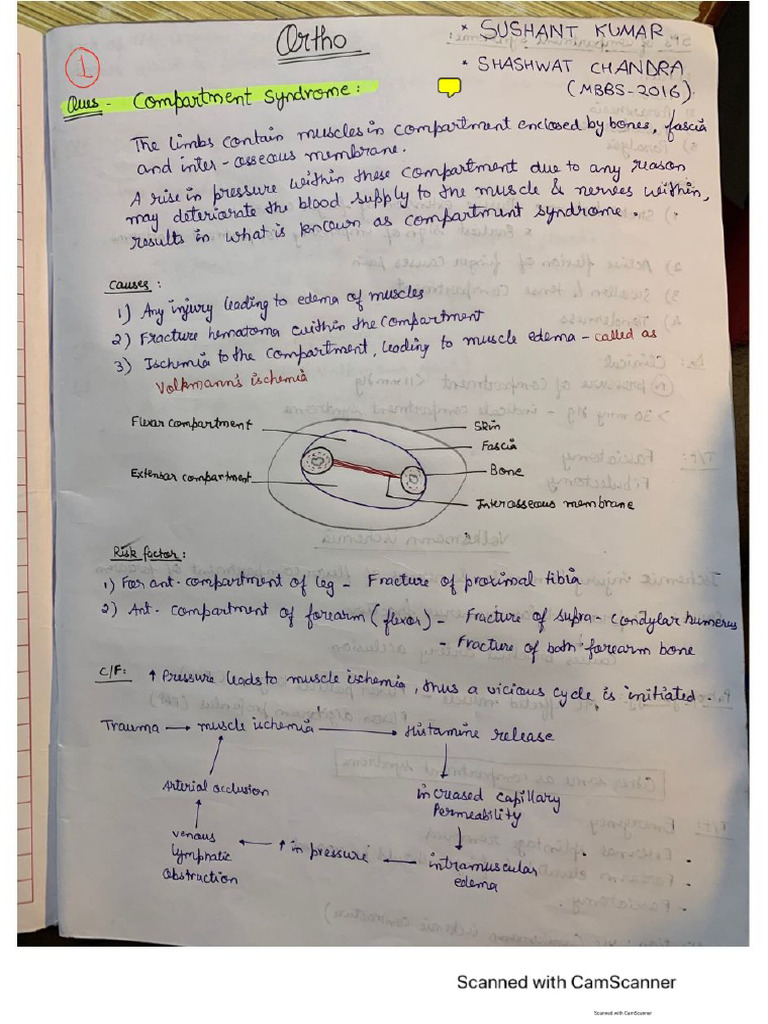 Ortho
* SUSHANT KUMAR
* SHASHWAT CHANDRA
(MBBS-2016)
1
Ques - Compartment Syndrome:
The limbs contain muscles in compartment enclosed by bones, fascia
and inter-osseous membrane.
A rise in pressure within these compartment due to any reason
may deteriarate the blood supply to the muscle & nerves within,
results in what is known as compartment syndrome.
Causes:
1) Any injury leading to edema of muscles
2) Fracture hematoma within the compartment
3) Ischemia to the compartment, leading to muscle edema - called as
Volkmann's ischemia
Flexar compartment
Skin
Fascia
Extensar compartment
Bone
Interosseous membrane
Risk factor:
1) For ant. compartment of leg - Fracture of proximal tibia
2) Ant. compartment of forearm (flexor) - Fracture of supra-condylar humerus
- Fracture of both forearm bone
C/F: ↑ Pressure leads to muscle ischemia, thus a vicious cycle is initiated.
Trauma → muscle ischemia → Histamine release
Arterial occlusion
increased capillary
Permeability
venous
lymphatic
obstruction
← ↑ in pressure ←
intramuscular
edema
Scanned with CamScanner
Scanned with CamScanner